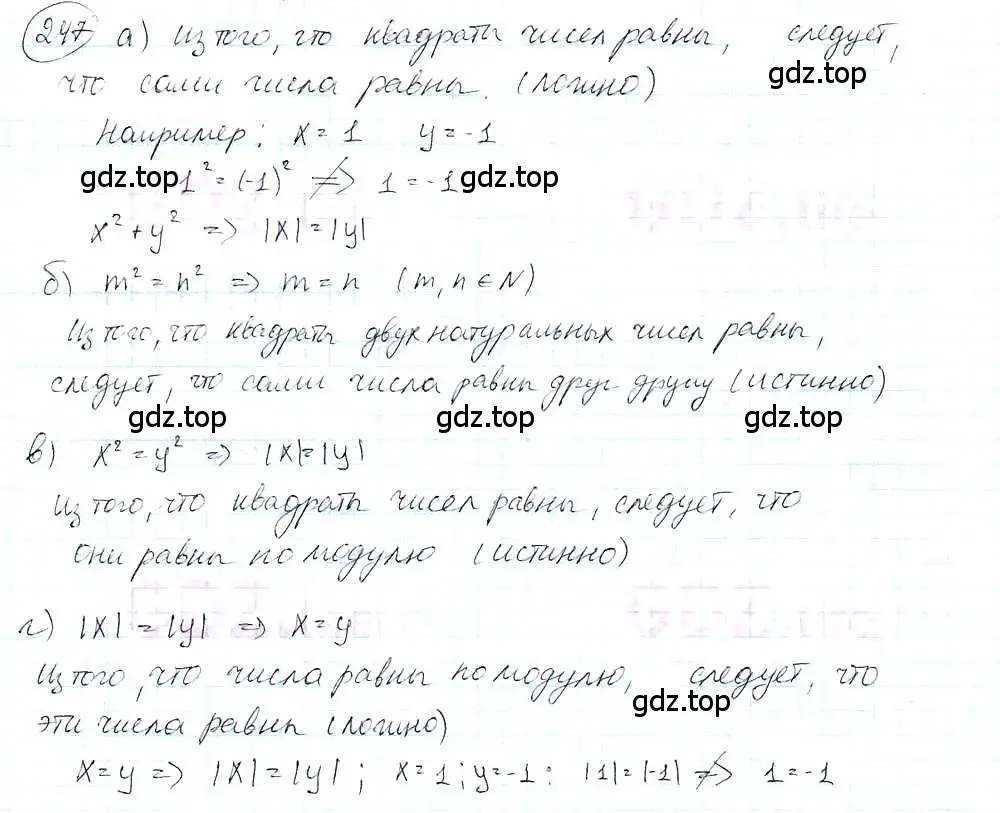 247 а) Из того, что квадраты чисел равны, следует,
что сами числа равны. (ложно)
Например: x = 1 y = -1
1² = (-1)² ≠> 1 = -1
x² + y² => |x| = |y|
б) m² = n² => m = n (m, n ∈ N)
Из того, что квадраты двух натуральных чисел равны,
следует, что сами числа равны друг другу (истинно)
в) x² = y² => |x| = |y|
Из того, что квадраты чисел равны, следует, что
они равны по модулю (истинно)
г) |x| = |y| => x = y
Из того, что числа равны по модулю, следует, что
эти числа равны (ложно)
x = y => |x| = |y| ; x = 1 ; y = -1 : |1| = |-1| ≠> 1 = -1
gdz.top
gdz.top
gdz.top
gdz.top
gdz.top
gdz.top
gdz.top